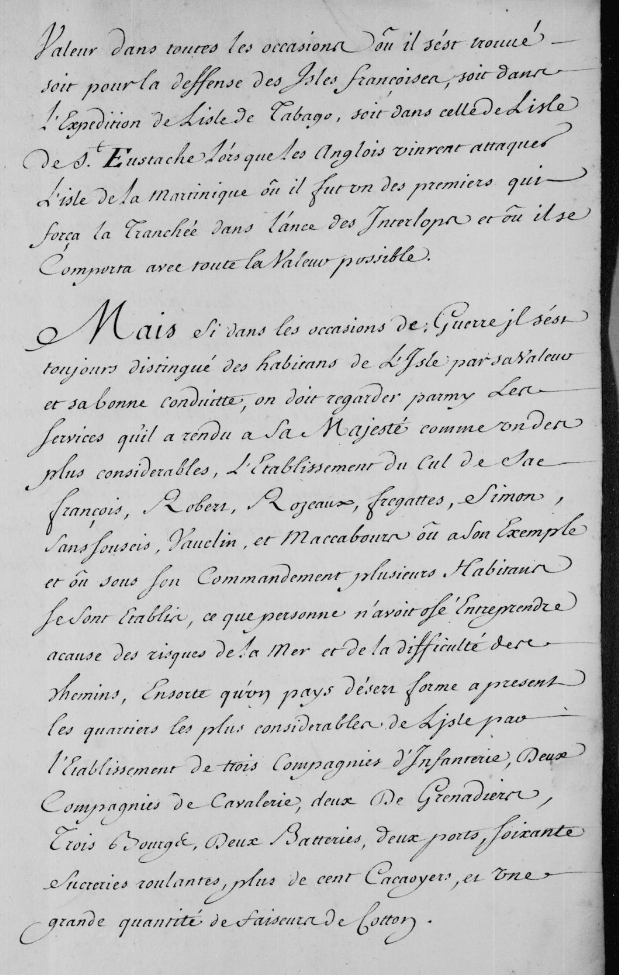 Valeur dans toutes les occasions où il s'ést trouué
soit pour la deffense des Isles françoises, soit dans
L'Expedition de Lisle de Tabago, soit dans celle de Lisle
de S.t Eustache Lórsque les Anglois vinrent attaquer
L'isle de la Martinique où il fut vn des premiers qui
força la Tranchée dans l'ánce des Interlops et où il se
Comporta avec toute la Valeur possible.
Mais si dans les occasions de Guerre jl s'ést
toujours distingué des habitans de L'Isle par sa Valeur
et sa bonne conduitte, on doit regarder parmy Les
services qu'il a rendu a Sa Majesté comme vn des
plus considerables, L'Etablissement du Cul de Sac
françois, Robert, Rozeaux, fregattes, Simon,
Sanssouscis, Vauclin, et Maccabours où a Son Exemple
et où sous son Commandement plusieurs Habitans
se sont Etablis, ce que personne n'avoit osé Entreprendre
acause des risques de la Mer et de la difficulté des
chemins, Ensorte qu'vn pays désert forme apresent
les quartiers les plus considerables de Ljsle par
l'Etablissement de trois Compagnies d'Infanterie, Deux
Compagnies de Cavalerie, deux De Grenadiers,
Trois Bourgs, Deux Batteries, deux ports, soixante
Sucreries roulantes, plus de cent Cacaoyers, et vne
grande quantité de faiseurs de Cotton.